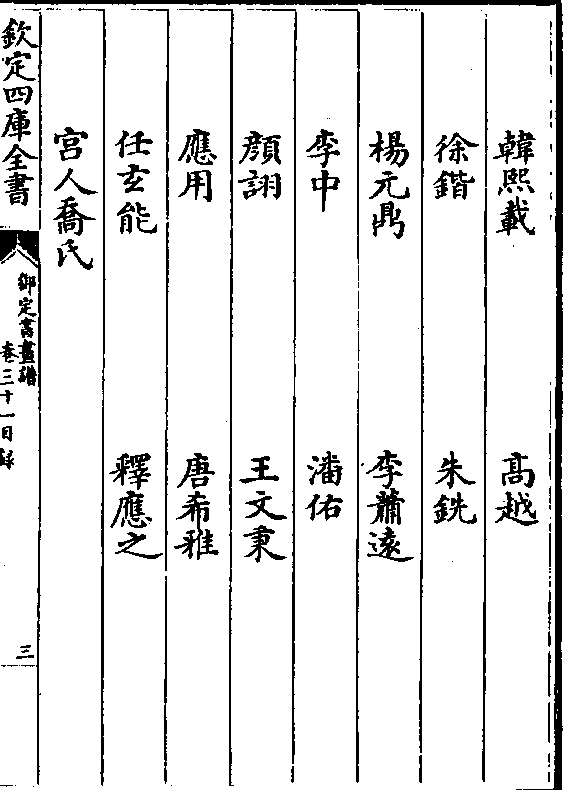 韓熙載 高越
徐鍇 朱銑
楊元鼎 李蕭遠
李中 潘佑
顏詡 王文秉
應用 唐希雅
任玄能 釋應之
宮人喬氏
欽定四庫全書
御定書畫譜
卷三十一目錄
三